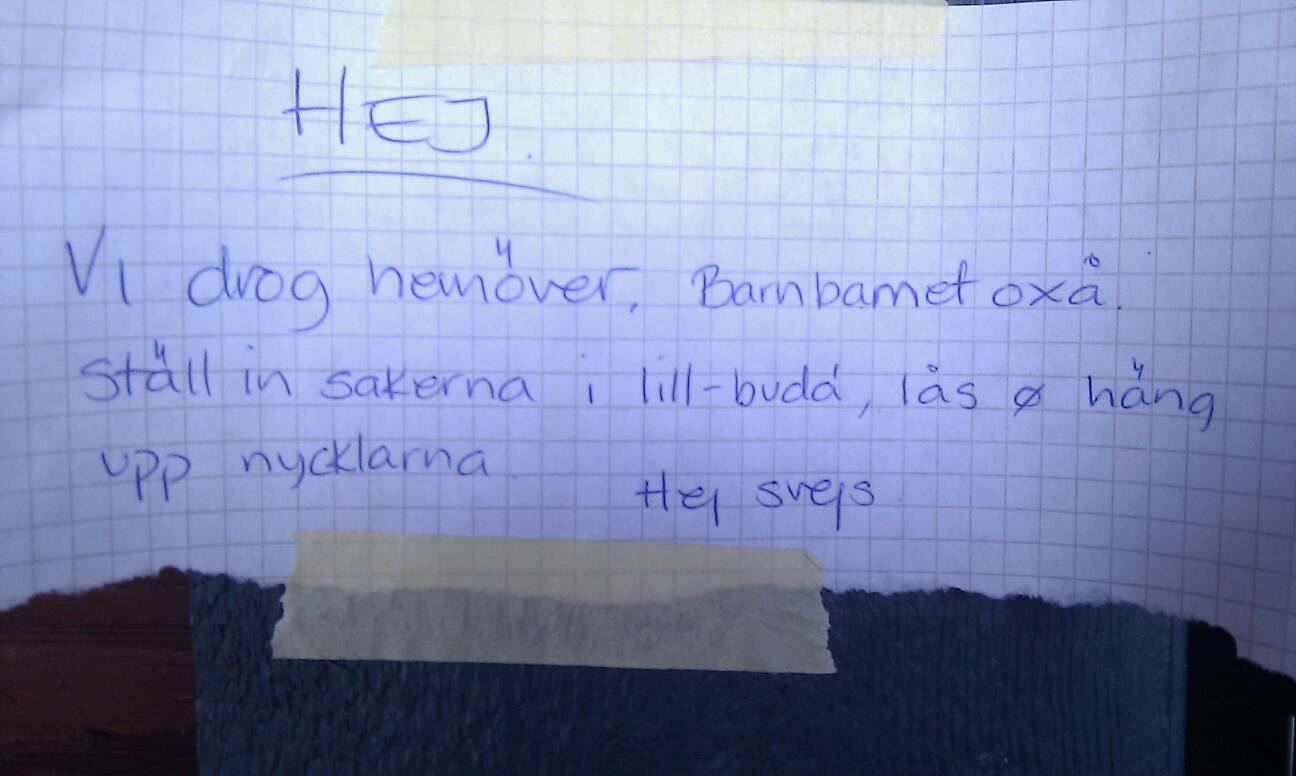 HEJ.
Vi drog hemöver. Barnbarnet oxå.
Ställ in sakerna i lill-budá, lås ø häng
upp nycklarna.
Hej svejs